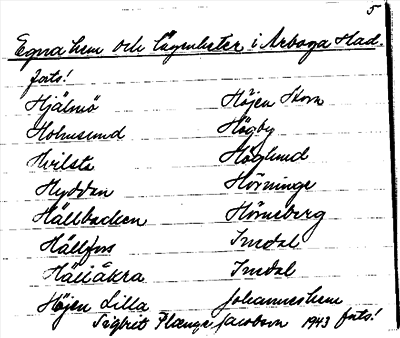 5
Egna hem och lägenheter i Arboga stad.
forts!
Hjälmö Höjen Stora
Holmsund Högby
Hvilsta Höglund
Hyddan Hörninge
Hällbacken Hörneberg
Hällfors Imdal
Hälleåkra Imdal
Höjen Lilla Johanneshem
Sigbrit Plænge Jacobson 1943 forts!